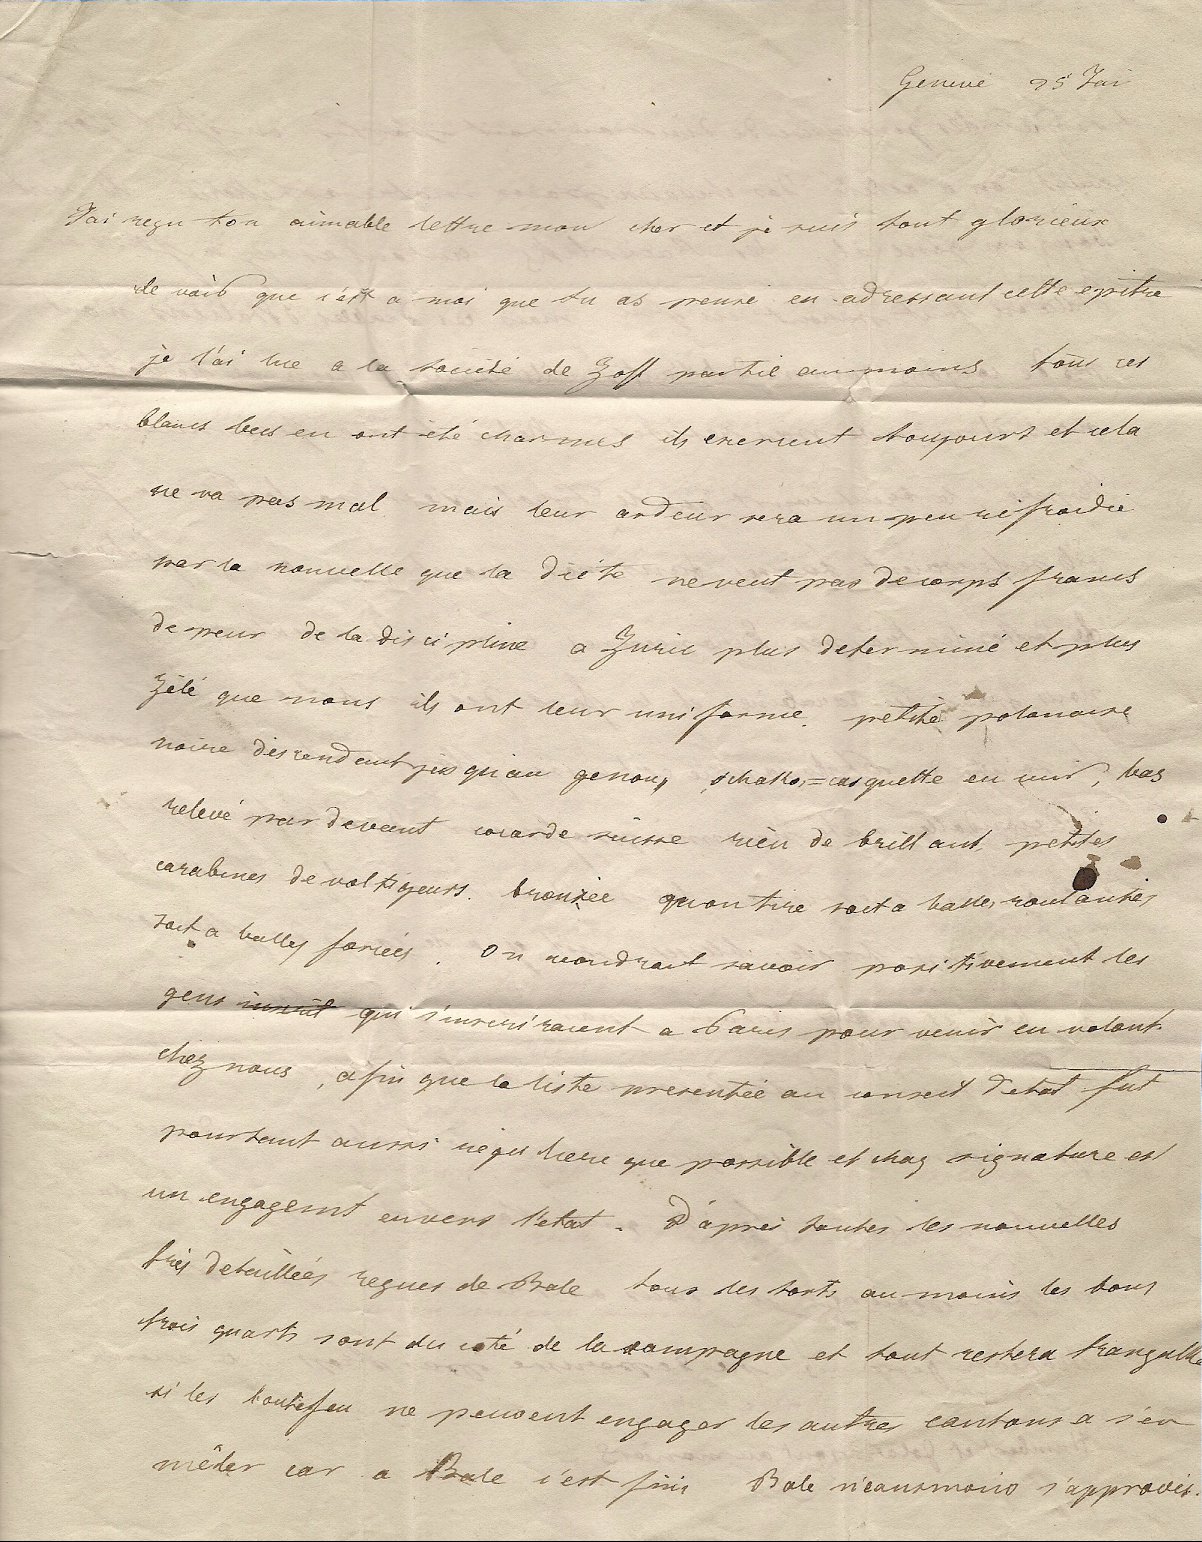 Geneve 25 Jan
J'ai reçu ton aimable lettre mon cher et je suis tout glorieux
de voir que c'est a moi que tu as pensé en adressant cette epitre
je l'ai lue a la société de Zoff partie au moins tous ces
blancs becs en ont été charmés ils exercent toujours et cela
ne va pas mal mais leur ardeur sera un peu refroidie
par la nouvelle que la diéte ne veut pas de corps francs
de peur de la discipline a Zuric plus determiné et plus
zélé que nous ils ont leur uniforme. petite polonaise
noire descendant jusqu'au genoux, schako,=casquette en cuir, bas
relevé par devant cocarde suisse rien de brillant petites
carabines de voltigeurs. bronzée qu'on tire soit a balles roulantes
soit a balles forcées. On voudrait savoir positivement les
gens qui s'inscriraient a Paris pour venir en volont
chez nous, afin que la liste presentée au conseil d'etat fut
pourtant aussi reguliere que possible et chaq signature est
un engagemt envers l'etat. D'après toutes les nouvelles
très detaillées reçues de Bale tous les torts au moins les bons
trois quarts sont du coté de la campagne et tout restera tranquille
si les boutefeu ne peuvent engager les autres cantons a s'en
mêler car a Bale c'est fini Bale néanmoins s'approvis.